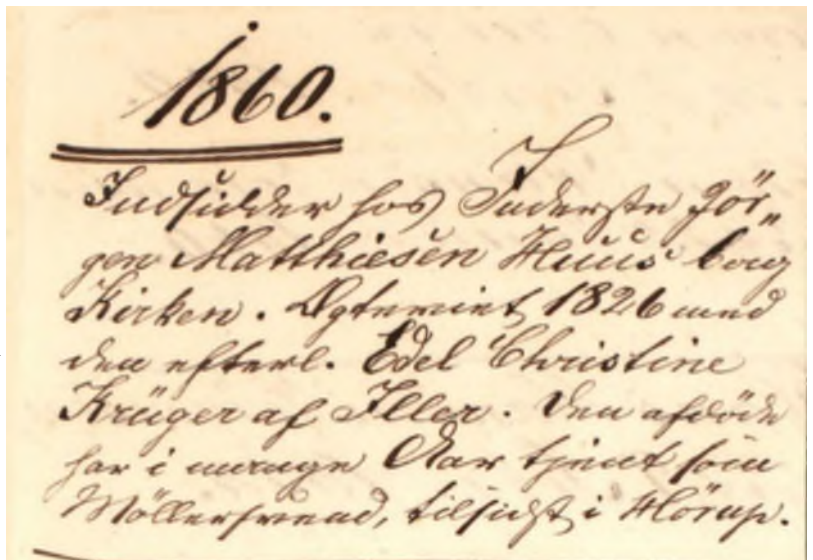 1860.
Indsidder hos Inderste Jör„
gen Matthiesen Huus bag
Kirken. Egteviet 1826 med
den efterl. Edel Christine
Krüger af Iller. Den afdöde
har i mange Aar tjent som
Möllersvend, tilsidst i Hörup.